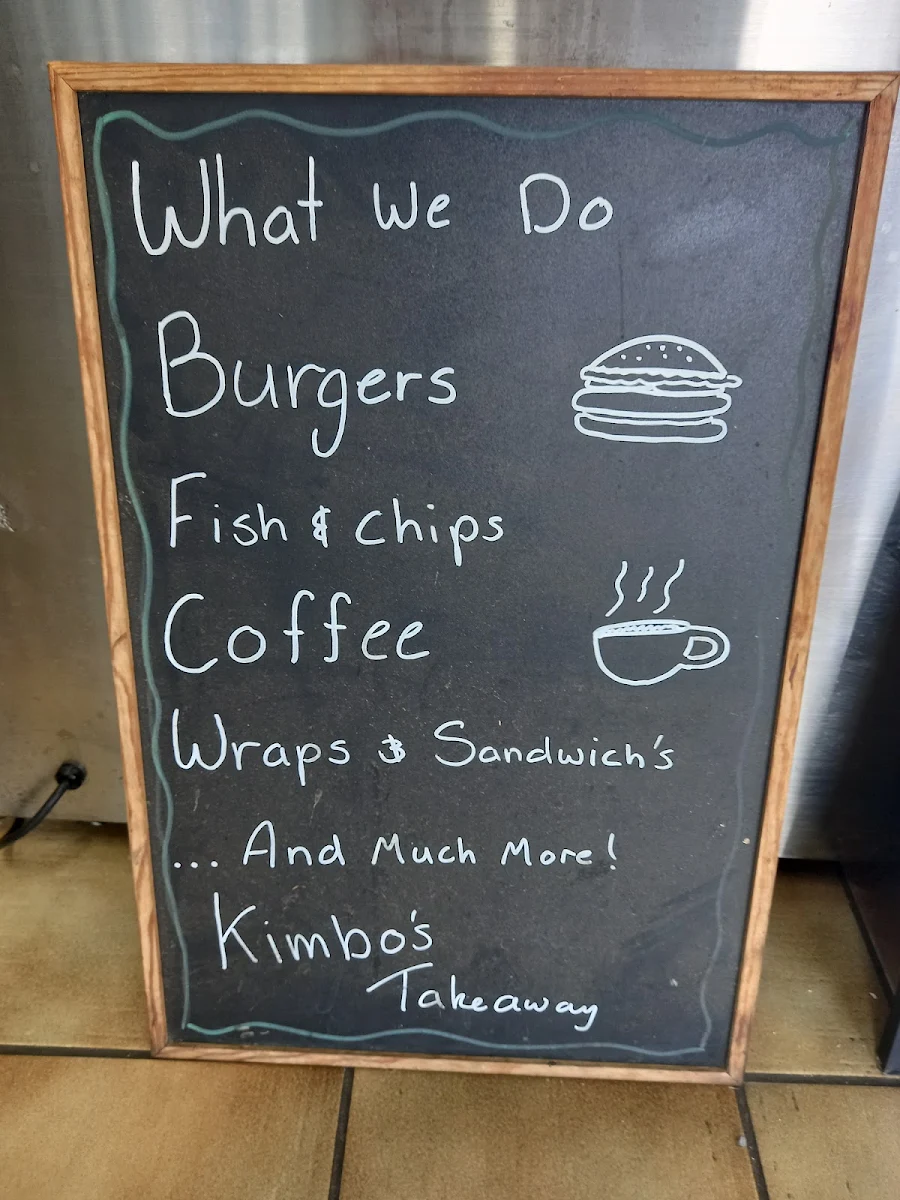 What We Do
Burgers
Fish & chips
Coffee
Wraps & Sandwich's
... And Much More!
Kimbo's
Takeaway